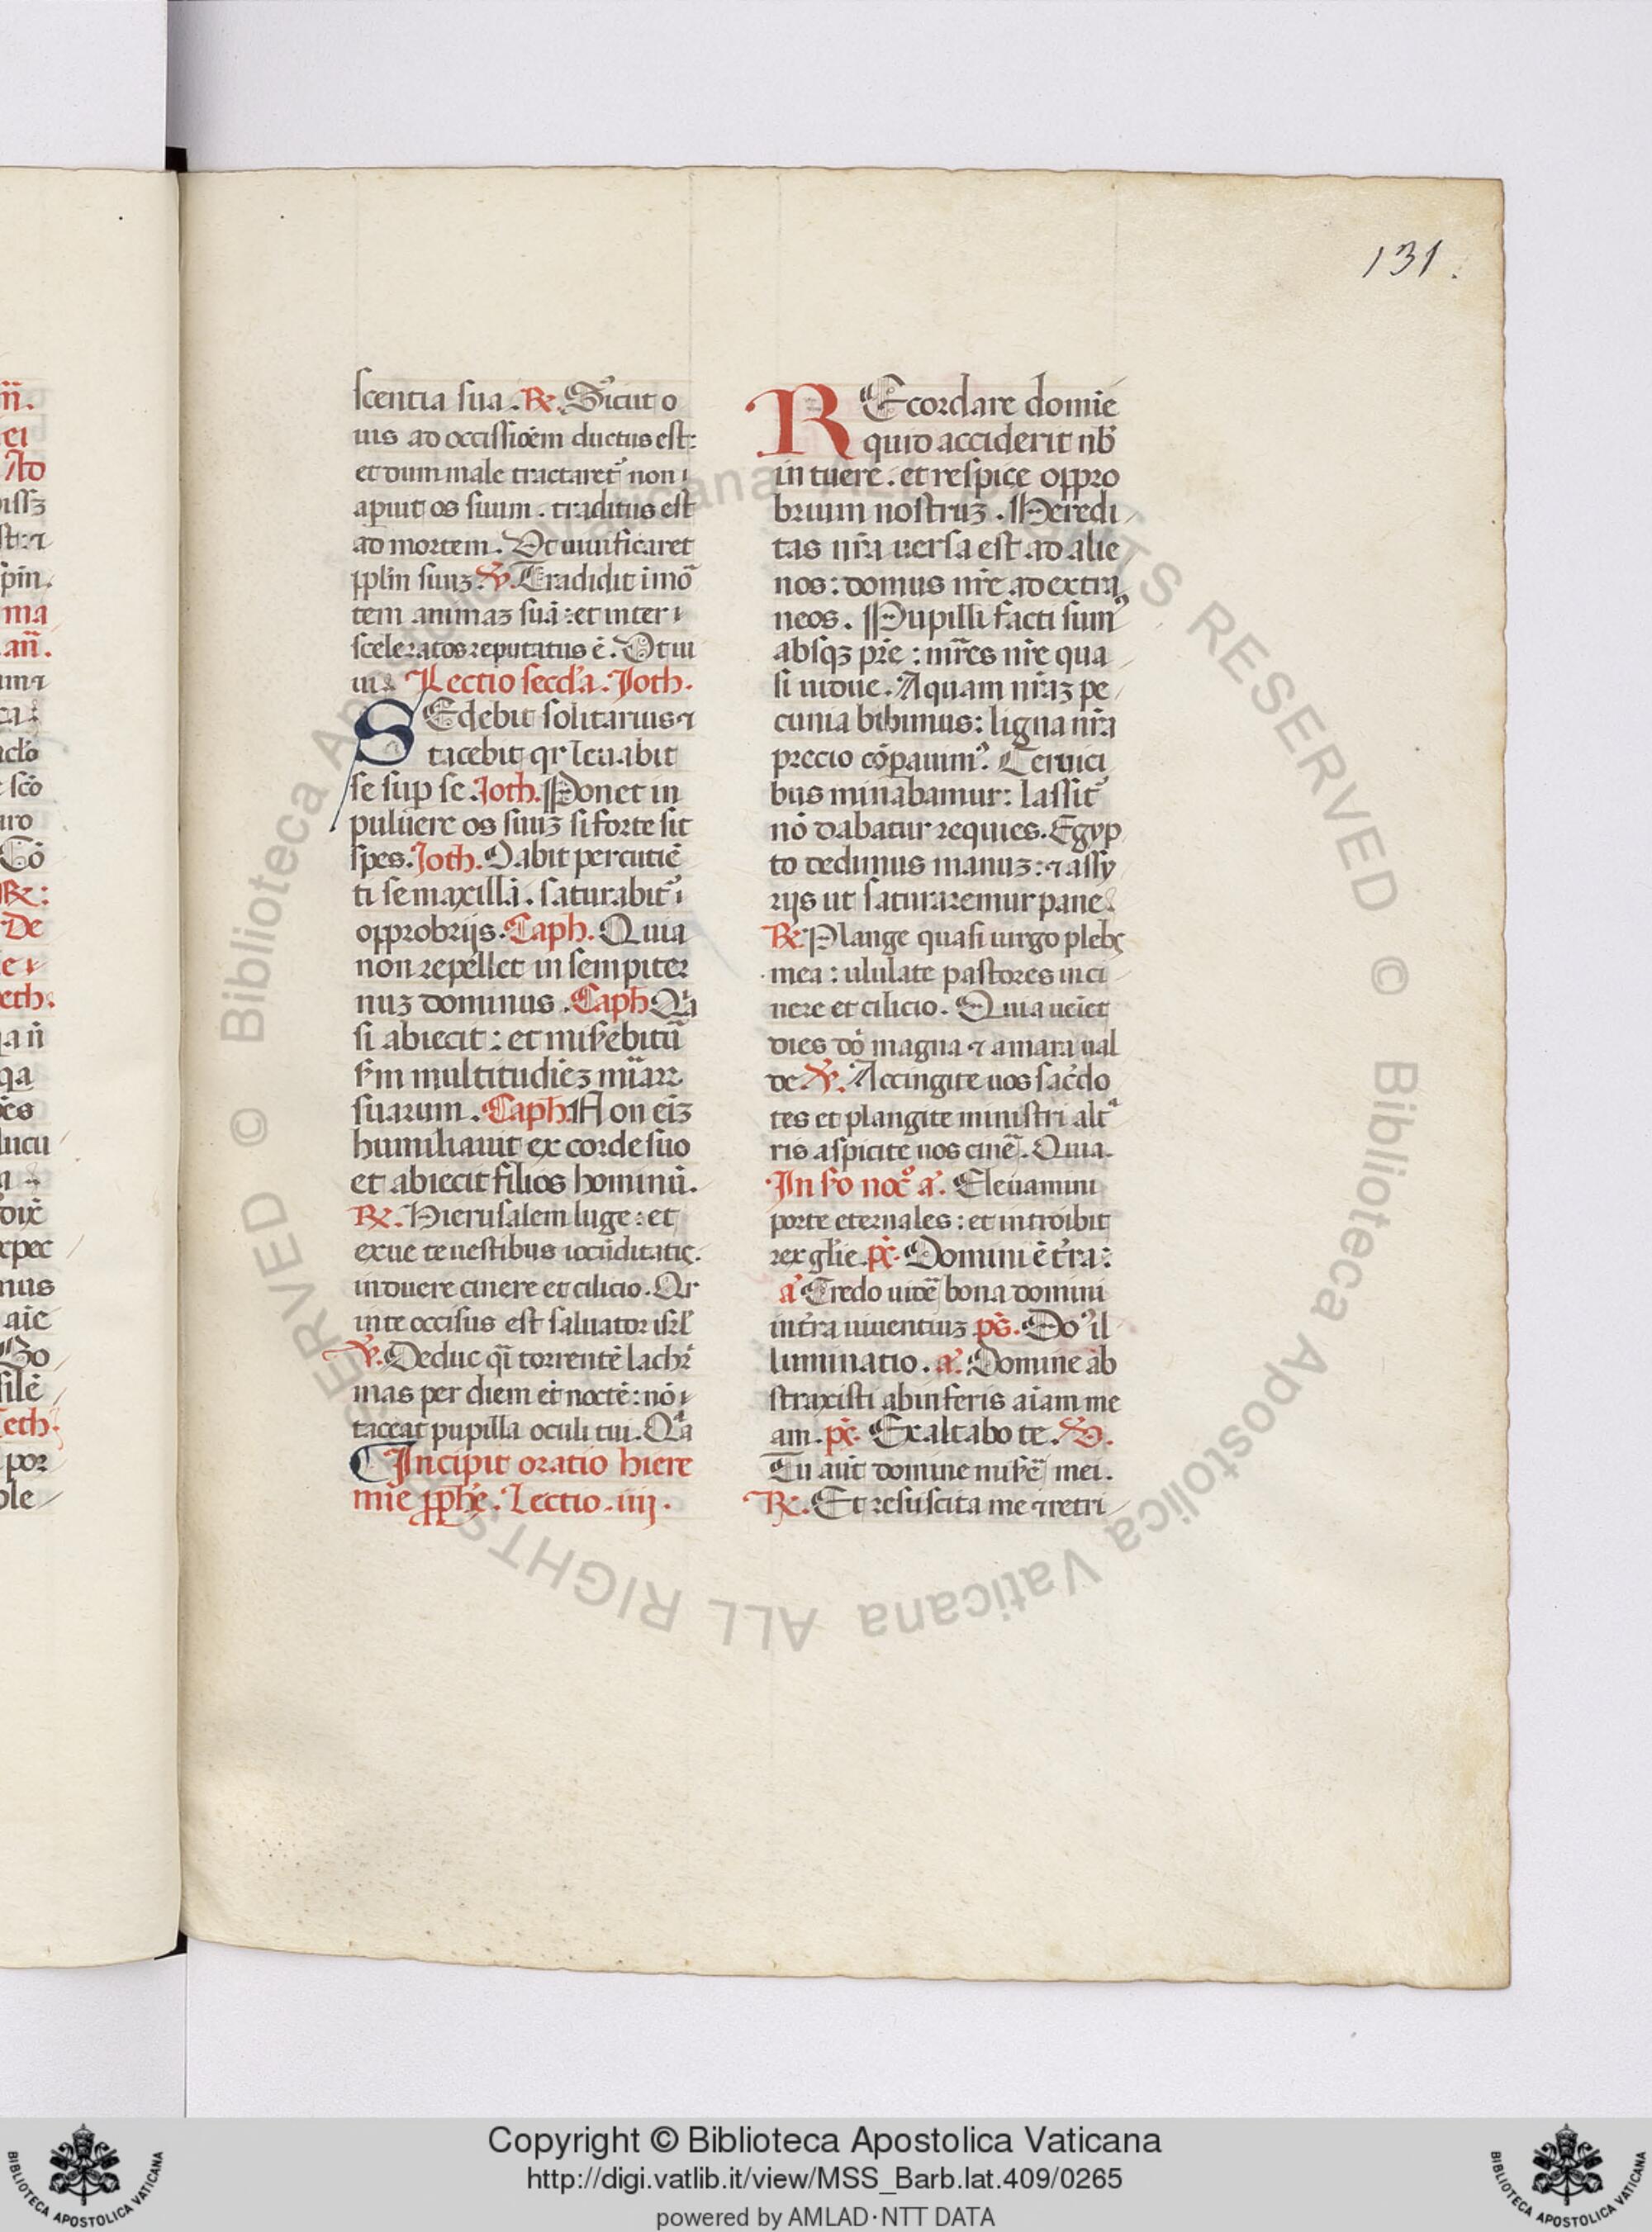 131.
scentia sua. R. Sicut o
uis ad occissioēm ductus est:
et dum male tractaret᷑ non
aperuit os suum. traditus est
ad mortem. Ut uiuificaret
pplm suuꝫ ℣. Tradidit i mo
tem animaꝫ suā: et inter
sceleratos reputatus ē. Ut ui
ui. Lectio secd'a. Joth.
SEdebit solitarius ⁊
tacebit qr leuabit
se sup se. Joth. Ponet in
puluere os suuꝫ si forte sit
spes. Joth. Dabit percutiē
ti se maxillā. saturabit᷑
opprobrijs. Caph. Quia
non repellet in sempiter
nuꝫ dominus. Caph Qa
si abiecit: et miserebitū
scꝺm multitudieꝫ miar
suarum. Caph. Non eīꝫ
humiliauit ex corde suo
et abiecit filios hominū.
R. Hierusalem luge: et
exue te uestibus iocūditatis.
induere cinere et cilicio. Qr
in te occisus est saluator isrl'
℣. Deduc qi torrentē lachri
mas per diem et noctē: nō
taceat pupilla oculi tui. Qa
Incipit oratio hiere
mie pphe. Lectio. iij.
REcordare domie
quid acciderit nb'
intuere. et respice oppro
brium nostruꝫ. Heredi
tas nr̄a uersa est ad alie
nos: domus nr̄e ad extra
neos. Pupilli facti sum᷒
absqꝫ pr̄e: mr̄es nr̄e qua
si uidue. Aquam nr̄aꝫ pe
cunia bibimus: ligna nr̄a
precio cōpauim᷒. Ceruici
bus minabamur: lassis
nō dabatur requies. Egyp
to dedimus manuꝫ: ⁊ assy
rijs ut saturaremur pane.
R. Plange quasi uirgo plebs
mea: ululate pastores in ci
nere et cilicio. Quia ueiet
dies do magna ⁊ amara ual
de ℣. Accingite uos sac̄do
tes et plangite ministri alt
ris aspicite uos cinē. Quia.
In so noc a. Eleuamini
porte eternales: et introibit
rex gl'ie. ps. Domini ē t'ra:
a Credo uidē bona domini
in t'ra uiuentiuꝫ ps. Do᷒ il
luminatio. a. Domine ab
straxisti ab inferis aīam me
am. ps. Exaltabo te. ℣.
Tu aut domine misere mei.
R. Et resuscita me ⁊ retri
Copyright © Biblioteca Apostolica Vaticana
http://digi.vatlib.it/view/MSS_Barb.lat.409/0265
powered by AMLAD·NTT DATA